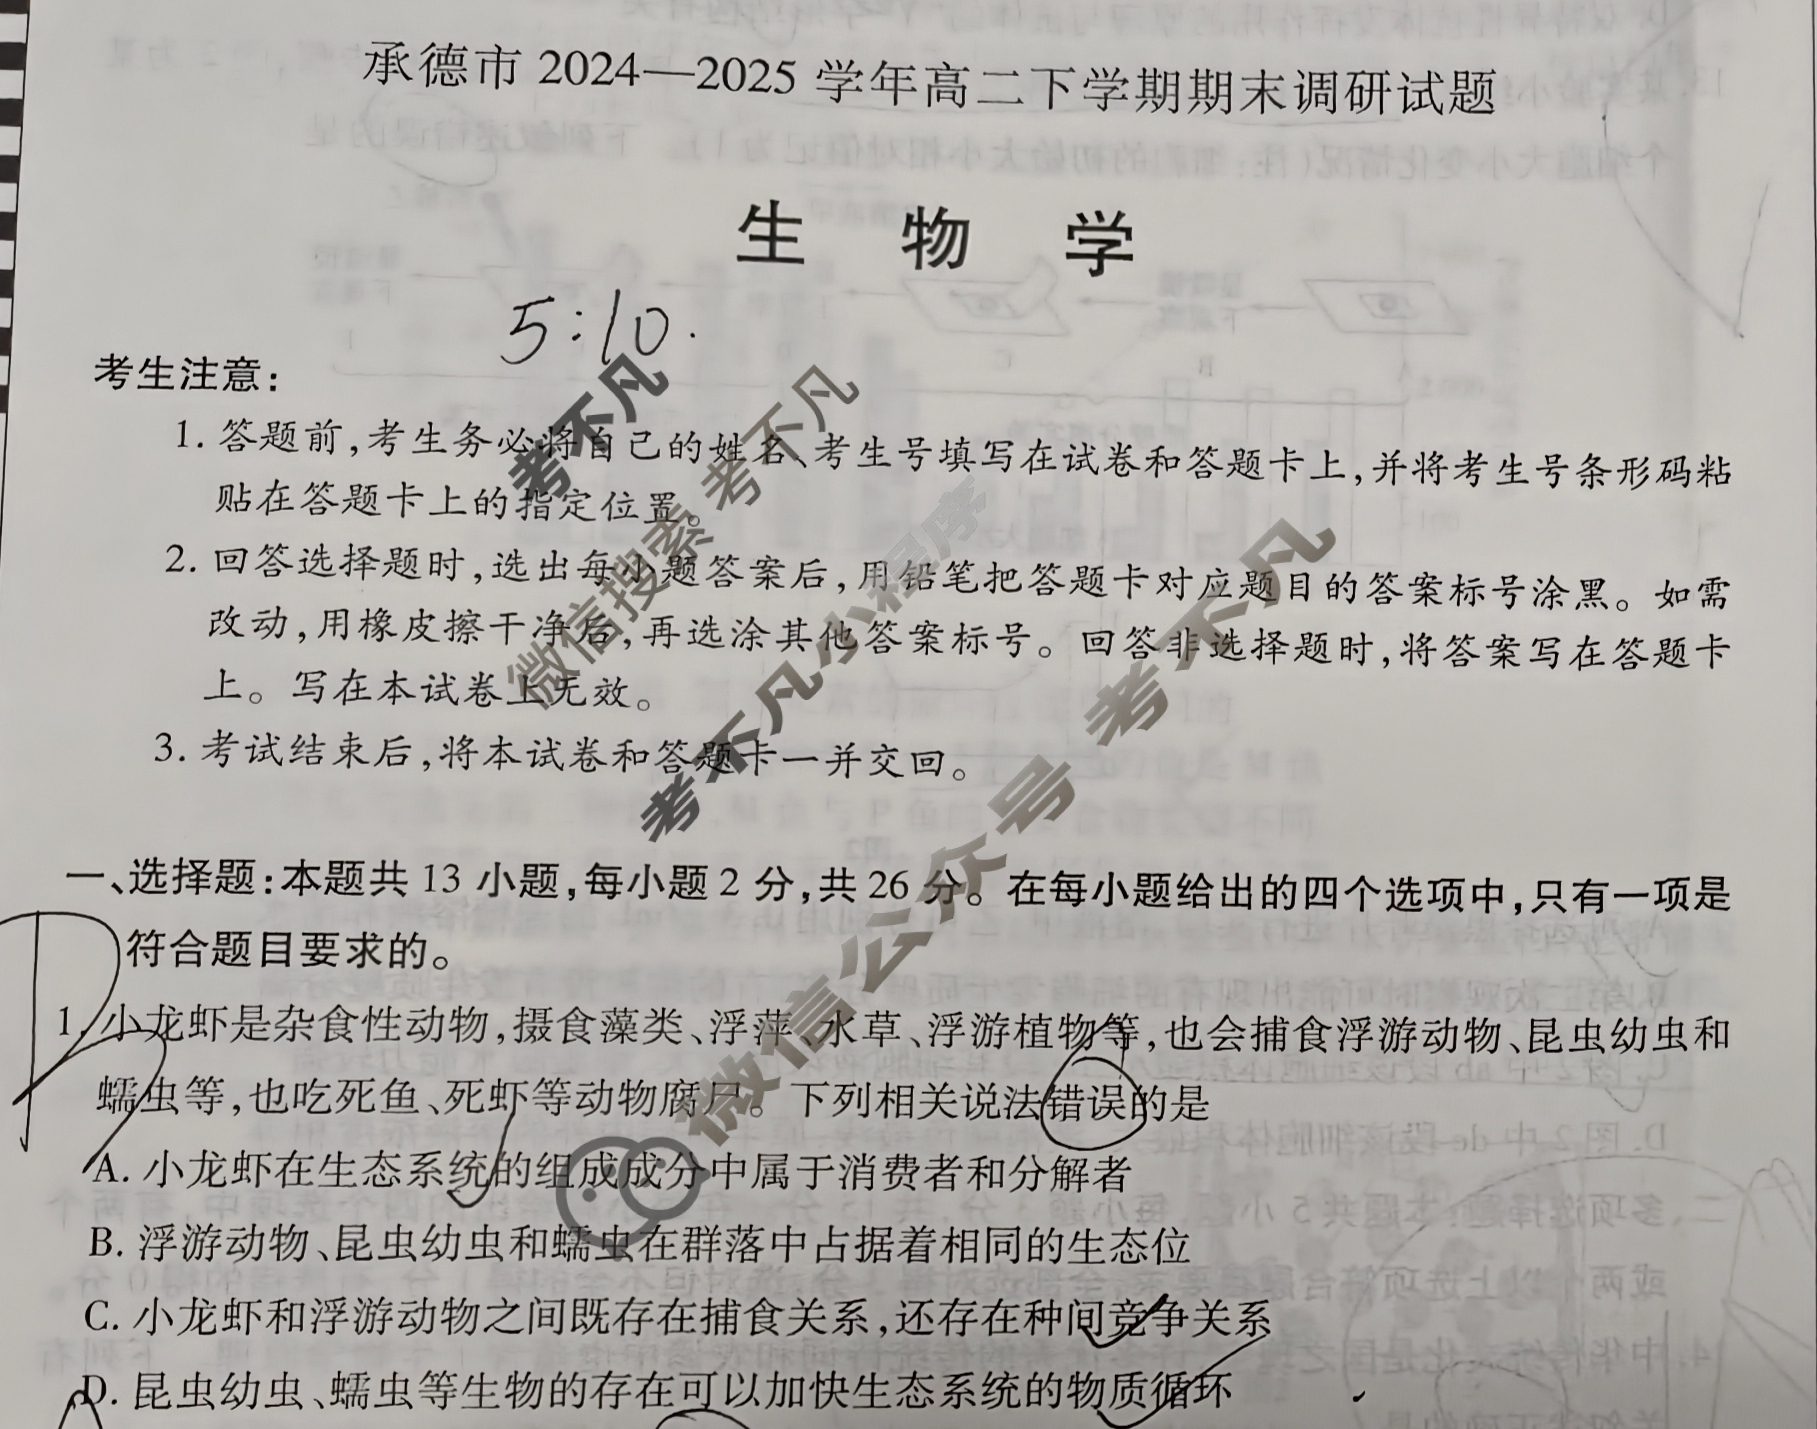 承德市 2024—2025 学年高二下学期期末调研试题
生 物 学
5:10.
考生注意:
1. 答题前,考生务必将自己的姓名、考生号填写在试卷和答题卡上,并将考生号条形码粘
贴在答题卡上的指定位置。
2. 回答选择题时,选出每小题答案后,用铅笔把答题卡对应题目的答案标号涂黑。如需
改动,用橡皮擦干净后,再选涂其他答案标号。回答非选择题时,将答案写在答题卡
上。写在本试卷上无效。
3. 考试结束后,将本试卷和答题卡一并交回。
考不凡
微信搜索 考不凡
考不凡小程序
微信公众号 考不凡
一、选择题:本题共 13 小题,每小题 2 分,共 26 分。在每小题给出的四个选项中,只有一项是
符合题目要求的。
1. 小龙虾是杂食性动物,摄食藻类、浮萍、水草、浮游植物等,也会捕食浮游动物、昆虫幼虫和
蠕虫等,也吃死鱼、死虾等动物腐尸。下列相关说法错误的是
A. 小龙虾在生态系统的组成成分中属于消费者和分解者
B. 浮游动物、昆虫幼虫和蠕虫在群落中占据着相同的生态位
C. 小龙虾和浮游动物之间既存在捕食关系,还存在种间竞争关系
D. 昆虫幼虫、蠕虫等生物的存在可以加快生态系统的物质循环